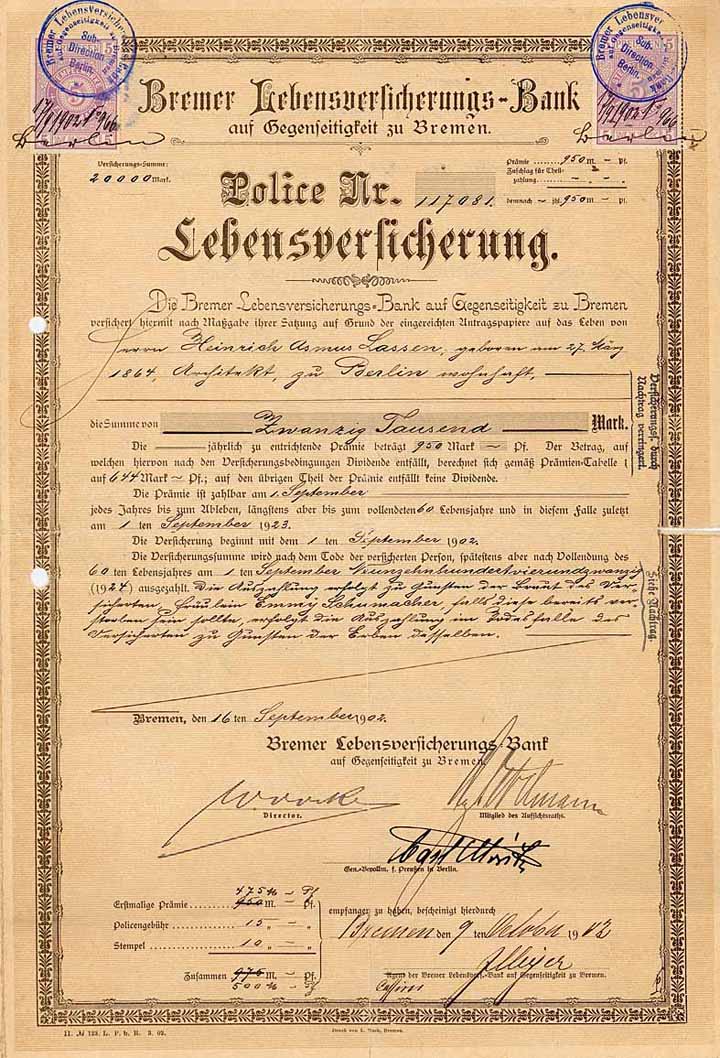 Bremer Lebensversicherungs-Bank
auf Gegenseitigkeit zu Bremen.
Sub-
Direction
Berlin.
Bremer Lebensver
Sub-
Direction
Berlin.
5
5
Berlin
Berlin
Bremer Lebensversicherungs-Bank
auf Gegenseitigkeit zu Bremen.
Versicherungs-Summe:
20000 Mark.
Prämie ...... 950 M. — Pf.
Zuschlag für Theil-
zahlung
demnach — jhl. 950 M. — Pf.
Police Nr. 117081.
Lebensversicherung.
Die Bremer Lebensversicherungs-Bank auf Gegenseitigkeit zu Bremen
versichert hiermit nach Maßgabe ihrer Satzung auf Grund der eingereichten Antragspapiere auf das Leben von
Herrn Heinrich Asmus Lassen, geboren am 27. März
1864, Architekt, zu Berlin wohnhaft,
die Summe von Zwanzig Tausend Mark.
Die — jährlich zu entrichtende Prämie beträgt 950 Mark — Pf. Der Betrag, auf
welchen hiervon nach den Versicherungsbedingungen Dividende entfällt, berechnet sich gemäß Prämien-Tabelle I
auf 644 Mark — Pf.; auf den übrigen Theil der Prämie entfällt keine Dividende.
Die Prämie ist zahlbar am 1. September
jedes Jahres bis zum Ableben, längstens aber bis zum vollendeten 60 Lebensjahres und in diesem Falle zuletzt
am 1 ten September 1923.
Die Versicherung beginnt mit dem 1 ten September 1902.
Die Versicherungssumme wird nach dem Tode der versicherten Person, spätestens aber nach Vollendung des
60 ten Lebensjahres am 1 ten September Neunzehnhundertvierundzwanzig
(1924) ausgezahlt. Die Auszahlung erfolgt zu Gunsten der Braut des Ver-
sicherten Fräulein Emmy Schumacher, falls diese bereits ver-
storben sein sollte, erfolgt die Auszahlung im Todesfalle des
Versicherten zu Gunsten der Erben desselben.
Versicherungss. durch
Nachtrag verringert.
Siehe Nachtrag.
Bremen, den 16 ten September 1902.
Bremer Lebensversicherungs-Bank
auf Gegenseitigkeit zu Bremen.
Director.
Mitglied des Aufsichtsraths.
Gen.-Bevollm. f. Preußen in Berlin.
475 M — Pf
Erstmalige Prämie ...... 950 M. — Pf.
Policengebühr ...... 15 „ — „
Stempel ...... 10 „ — „
Zusammen 975 M. — Pf.
500 M —
empfangen zu haben, bescheinigt hierdurch
Bremen den 9 ten October 1902
Meyer
Agent der Bremer Lebensvers.-Bank auf Gegenseitigkeit zu Bremen.
II. № 123. L. P. b. R. 5. 02.
Druck von L. Mack, Bremen.